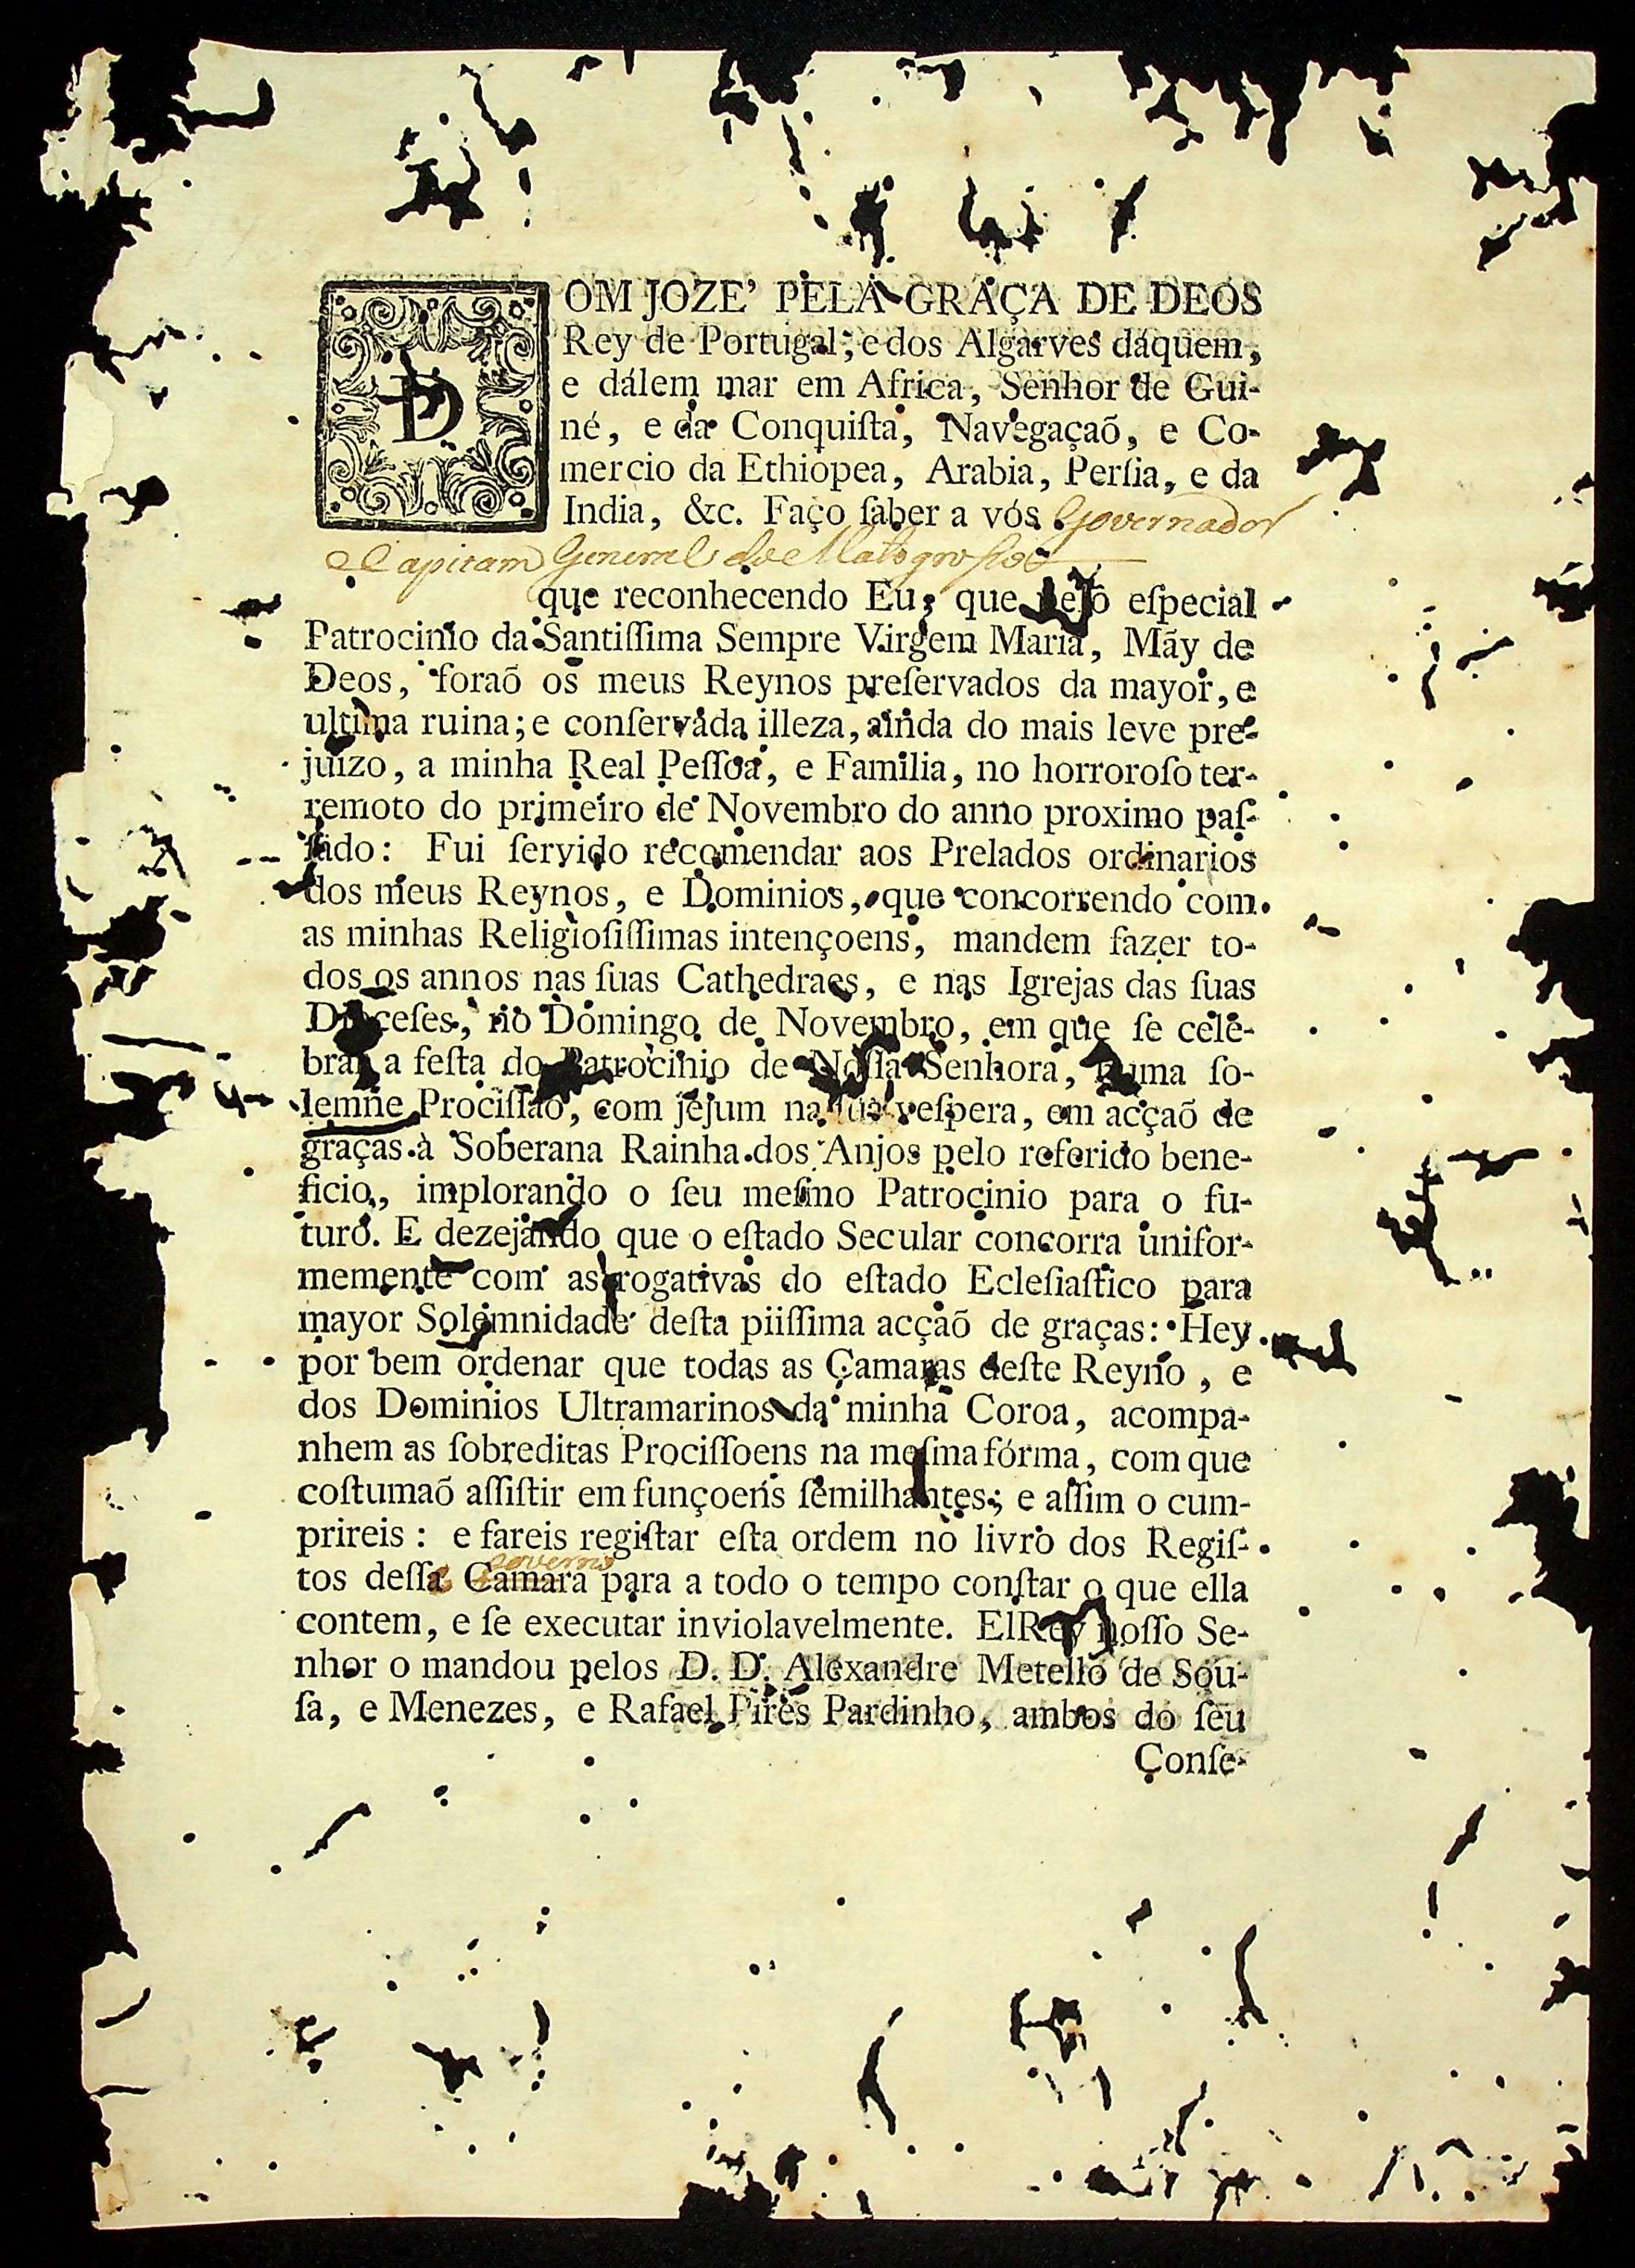 DOM JOZE' PELA GRAÇA DE DEOS
Rey de Portugal, e dos Algarves dáquem,
e dálem mar em Africa, Senhor de Gui-
né, e da Conquiſta, Navegaçaõ, e Co-
mercio da Ethiopea, Arabia, Perſia, e da
India, &c. Faço ſaber a vós Governador
e Capitam General do Matogroſso
que reconhecendo Eu, que pelo eſpecial
Patrocinio da Santiſſima Sempre Virgem Maria, Mãy de
Deos, foraõ os meus Reynos preſervados da mayor, e
ultima ruina; e conſervada illeza, ainda do mais leve pre-
juizo, a minha Real Peſſoa, e Familia, no horroroſo ter-
remoto do primeiro de Novembro do anno proximo paſ-
ſado: Fui ſervido recomendar aos Prelados ordinarios
dos meus Reynos, e Dominios, que concorrendo com
as minhas Religioſiſſimas intençoens, mandem fazer to-
dos os annos nas ſuas Cathedraes, e nas Igrejas das ſuas
Dioceſes, no Domingo de Novembro, em que ſe cele-
brar a feſta do Patrocinio de Noſſa Senhora, huma ſo-
lemne Prociſſaõ, com jejum na ſua veſpera, em acçaõ de
graças à Soberana Rainha dos Anjos pelo referido bene-
ficio, implorando o ſeu meſmo Patrocinio para o fu-
turo. E dezejando que o eſtado Secular concorra unifor-
memente com as rogativas do eſtado Ecleſiaſtico para
mayor Solemnidade deſta piiſſima acçaõ de graças: Hey
por bem ordenar que todas as Camaras deſte Reyno, e
dos Dominios Ultramarinos da minha Coroa, acompa-
nhem as ſobreditas Prociſſoens na meſma fórma, com que
coſtumaõ aſſiſtir em funçoens ſemilhantes; e aſſim o cum-
prireis: e fareis regiſtar eſta ordem no livro dos Regiſ-
governo
tos deſſa Camara para a todo o tempo conſtar o que ella
contem, e ſe executar inviolavelmente. ElRey noſſo Se-
nhor o mandou pelos D. D. Alexandre Metello de Sou-
ſa, e Menezes, e Rafael Pires Pardinho, ambos do ſeu
Conſe-